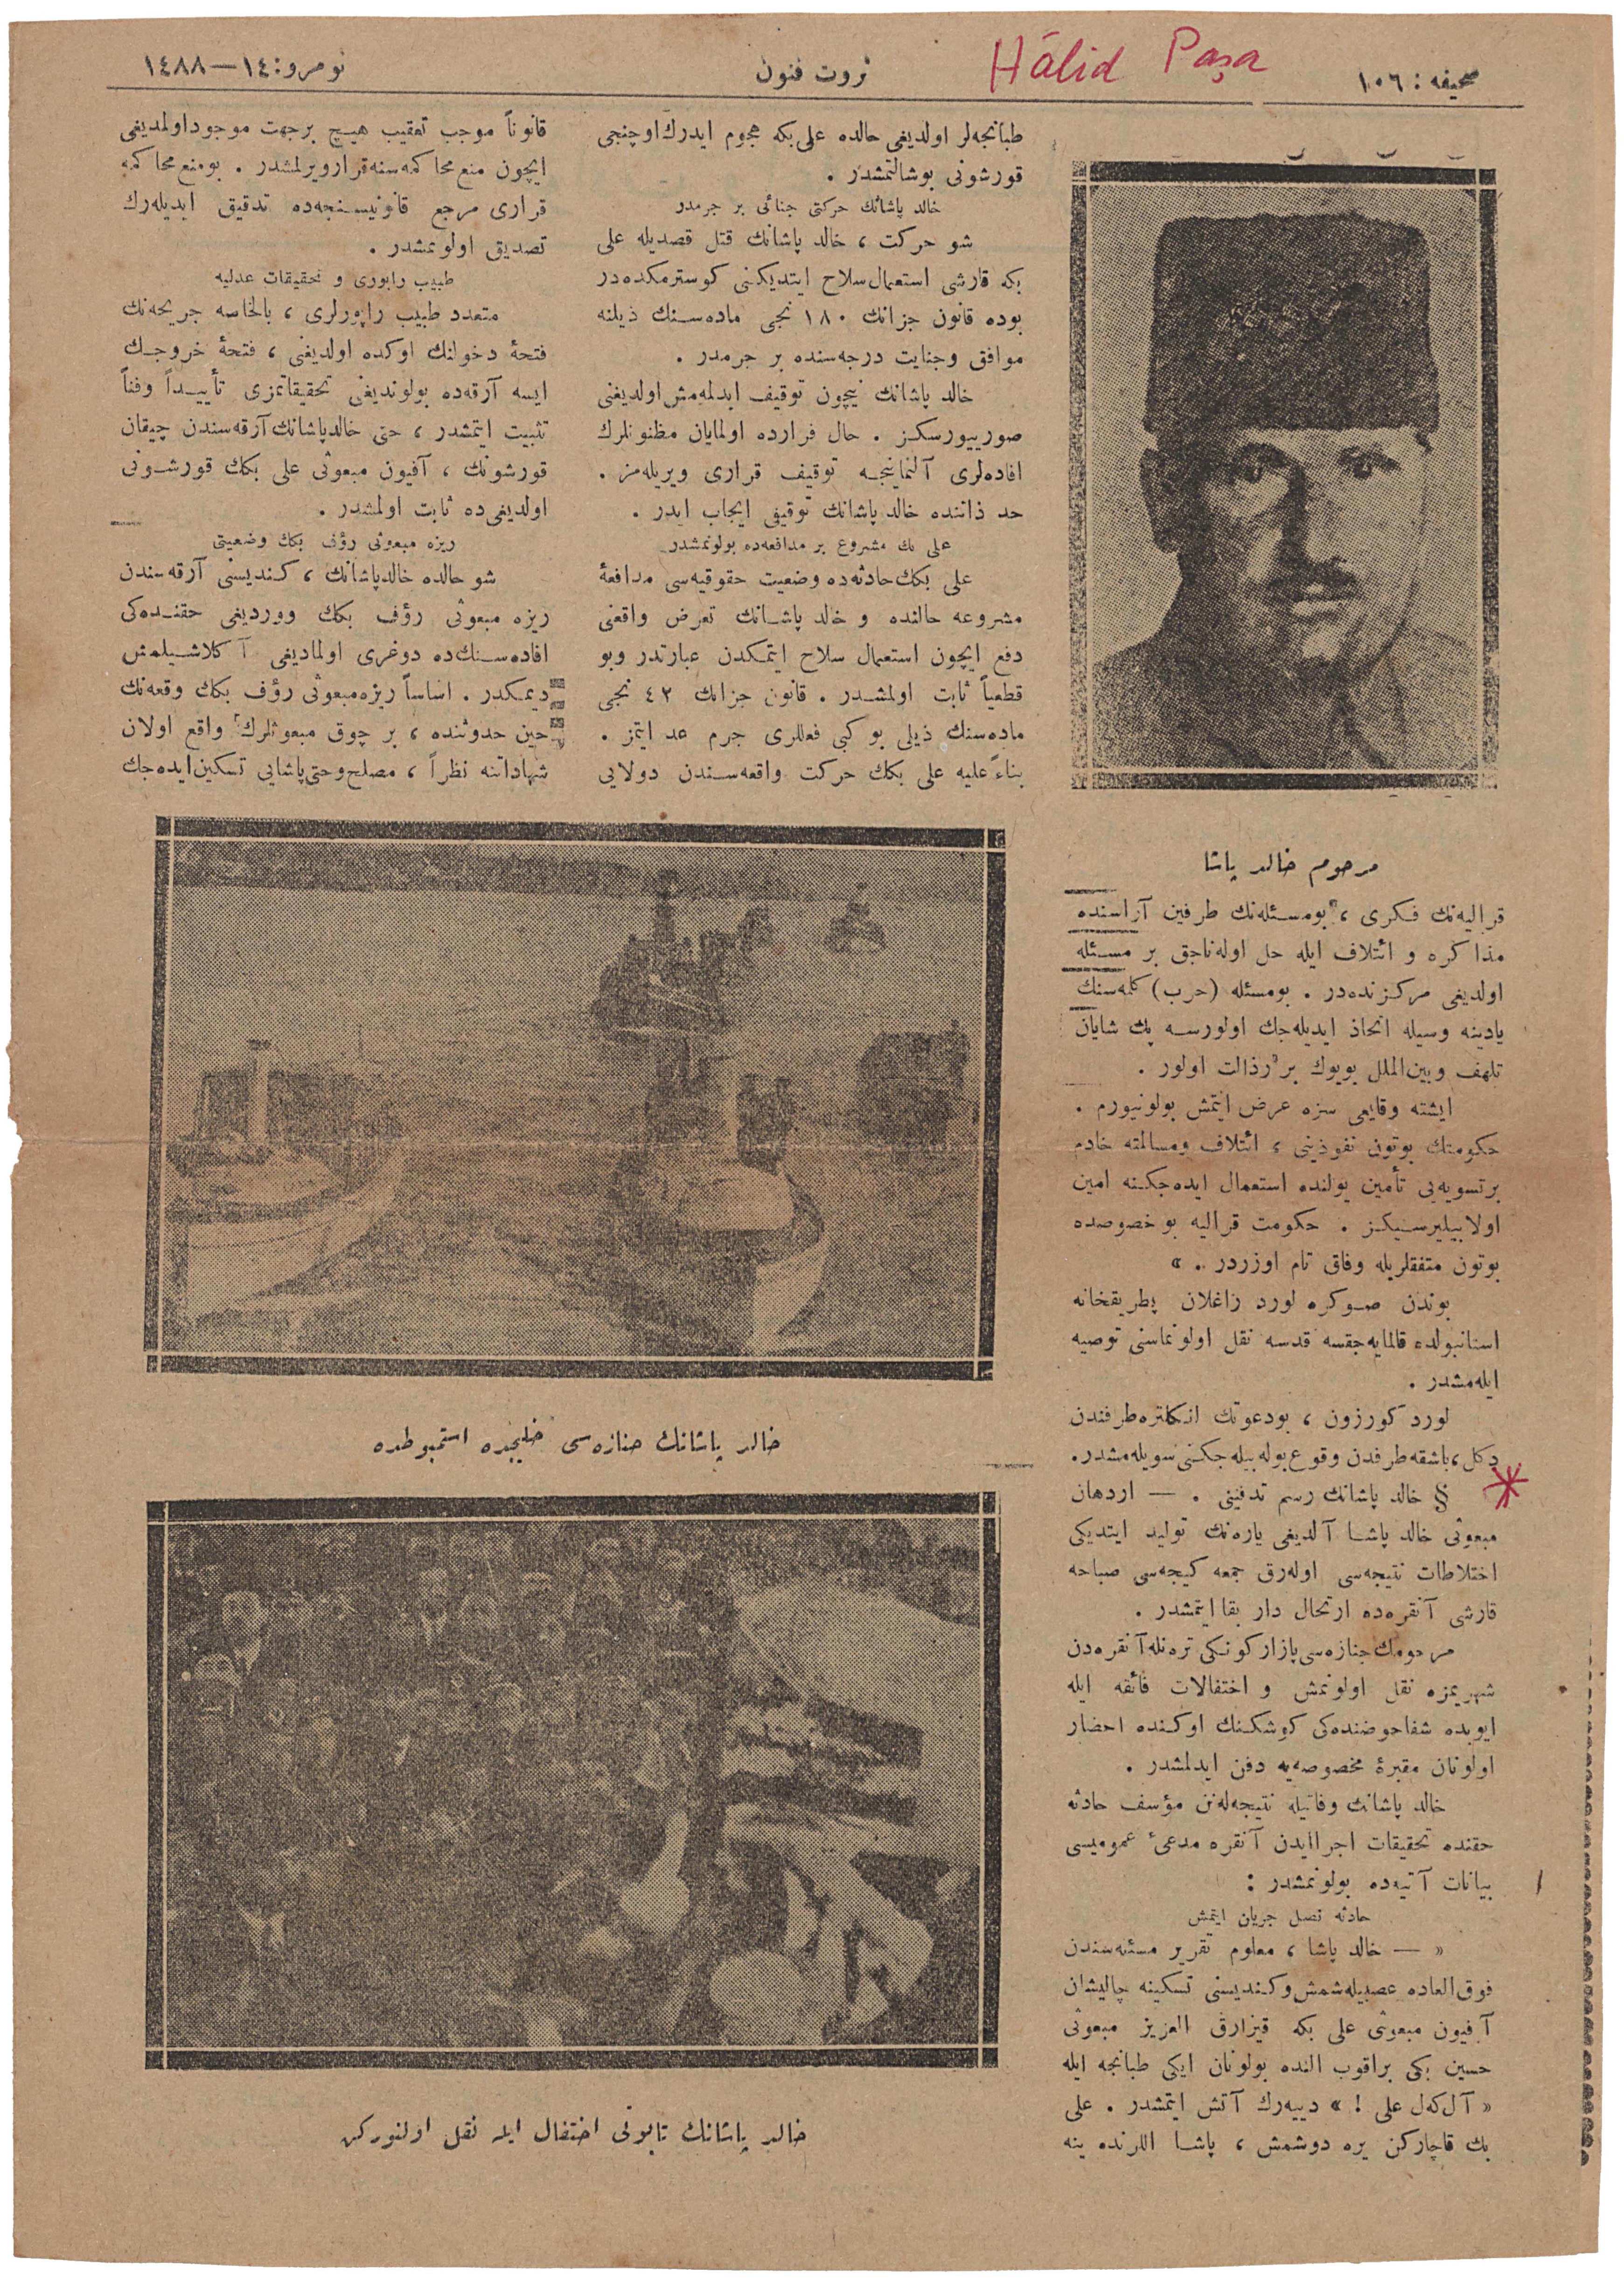 صحیفه : ١٠٦
Hâlid Paşa
ثروت فنون
نومرو : ١٤ — ١٤٨٨
مرحوم خالد پاشا
قرالیه‌نك فكری ، بومسئله‌نك طرفین آراسنده
مذاكره و ائتلاف ایله حل اوله‌ناجق بر مسئله
اولدیغی مركزنده‌در . بومسئله (حرب) كلمه‌سنك
یادینه وسیله اتخاذ ایدیله‌جك اولورسه پك شایان
تلهف وبین‌الملل بویوك بر رذالت اولور .
ایشته وقایعی سزه عرض ایتمش بولونیورم .
حكومتك بوتون نفوذینی ، ائتلاف ومسالمته خادم
برتسویه‌یی تأمین یولنده استعمال ایده‌جكنه امین
اولابیلیرسیكز . حكومت قرالیه بو خصوصده
بوتون متفقلریله وفاق تام اوزردر . »
بوندن صوكره لورد زاغلان پطریقخانه
استانبولده قالمایه‌جقسه قدسه نقل اولونماسنی توصیه
ایله‌مشدر .
لورد كورزون ، بودعوتك انكلتره‌طرفندن
دكل ، باشقه‌طرفدن وقوع‌بوله‌بیله‌جكنی سویله‌مشدر.
§ خالد پاشانك رسم تدفینی . — اردهان
مبعوثی خالد پاشا آلدیغی یاره‌نك تولید ایتدیكی
اختلاطات نتیجه‌سی اوله‌رق جمعه كیجه‌سی صباحه
قارشی آنقره‌ده ارتحال دار بقا ایتمشدر .
مرحومك جنازه‌سی پازار كونكی ترەنله آنقره‌دن
شهریمزه نقل اولونمش و احتفالات فائقه ایله
ایوبده شفاحوضنده‌كی كوشكنك اوكنده احضار
اولونان مقبرۀ مخصوصه‌یه دفن ایدلمشدر .
خالد پاشانك وفاتیله نتیجه‌لەنن مؤسف حادثه
حقنده تحقیقات اجرا ایدن آنقره مدعیٔ عمومیسی
بیانات آتیه‌ده بولونمشدر :
حادثه نصل جریان ایتمش
« — خالد پاشا ، معلوم تقریر مسئله‌سندن
فوق‌العاده عصبیله‌شمش وكندیسنی تسكینه چالیشان
آفیون مبعوثی علی بكه قیزارق العزیز مبعوثی
حسین بكی براقوب النده بولونان ایكی طبانجه ایله
« آل كه‌ل علی ! » دییه‌رك آتش ایتمشدر . علی
بك قاچاركن یره دوشمش ، پاشا اللرنده ینه
طبانجه‌لر اولدیغی حالده علی بكه هجوم ایدرك اوچنجی
قورشونی بوشالتمشدر .
خالد پاشانك حركتی جنائی بر جرمدر
شو حركت ، خالد پاشانك قتل قصدیله علی
بكه قارشی استعمال سلاح ایتدیكنی كوسترمكده‌در
بوده قانون جزانك ١٨٠ نجی ماده‌سنك ذیلنه
موافق وجنایت درجه‌سنده بر جرمدر .
خالد پاشانك نیچون توقیف ایدلمه‌مش اولدیغنی
صورییورسكز . حال فرارده اولمایان مظنونلرك
افاده‌لری آلنماینجه توقیف قراری ویریله‌مز .
حد ذاتنده خالد پاشانك توقیفی ایجاب ایدر .
علی بك مشروع بر مدافعه‌ده بولونمشدر
علی بكك حادثه‌ده وضعیت حقوقیه‌سی مدافعۀ
مشروعه حالنده و خالد پاشانك تعرض واقعنی
دفع ایچون استعمال سلاح ایتمكدن عبارتدر وبو
قطعیاً ثابت اولمشدر . قانون جزانك ٤٢ نجی
ماده‌سنك ذیلی بو كبی فعللری جرم عد ایتمز .
بناءً علیه علی بكك حركت واقعه‌سندن دولایی
قانوناً موجب تعقیب هیچ برجهت موجود اولمدیغی
ایچون منع محاكمه‌سنه قرار ویرلمشدر . بومنع محاكمه
قراری مرجع قانونیسنجه‌ده تدقیق ایدیله‌رك
تصدیق اولونمشدر .
طبیب راپوری و تحقیقات عدلیه
متعدد طبیب راپورلری ، بالخاصه جریحه‌نك
فتحۀ دخولنك اوكده اولدیغی ، فتحۀ خروجك
ایسه آرقه‌ده بولوندیغی تحقیقاتمزی تأییداً وفناً
تثبیت ایتمشدر ، حتی خالد پاشانك آرقه‌سندن چیقان
قورشونك ، آفیون مبعوثی علی بكك قورشونی
اولدیغی‌ده ثابت اولمشدر .
ریزه مبعوثی رؤف بكك وضعیتی
شو حالده خالد پاشانك ، كندیسنی آرقه‌سندن
ریزه مبعوثی رؤف بكك ووردیغی حقنده‌كی
افاده‌سنك‌ده دوغری اولمادیغی آكلاشیلمش
دیمكدر . اساساً ریزه مبعوثی رؤف بكك وقعه‌نك
حین حدوثنده ، بر چوق مبعوثلرك واقع اولان
شهاداتنه نظراً ، مصلح وحتی پاشایی تسكین ایده‌جك
خالد پاشانك جنازه‌سی خلیجده استمبوطده
خالد پاشانك تابوتی احتفال ایله نقل اولنوركن